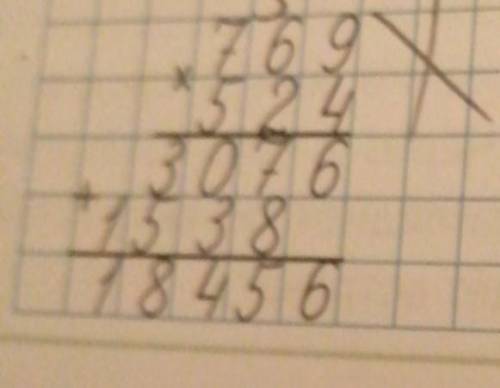 769
× 524
3076
+ 1538
18456